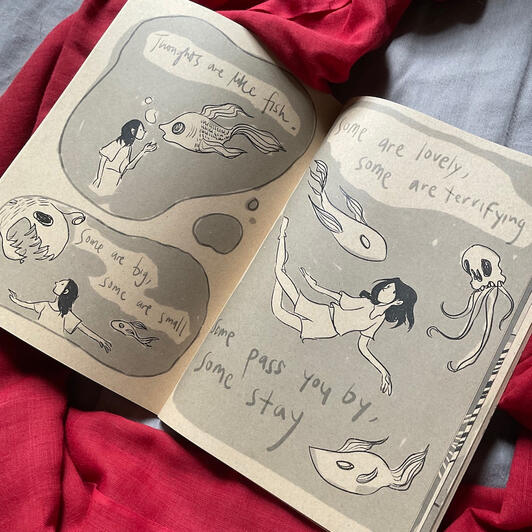 Thoughts are like fish.
Some are big,
some are small
Some are lovely,
some are terrifying
some pass you by,
some stay